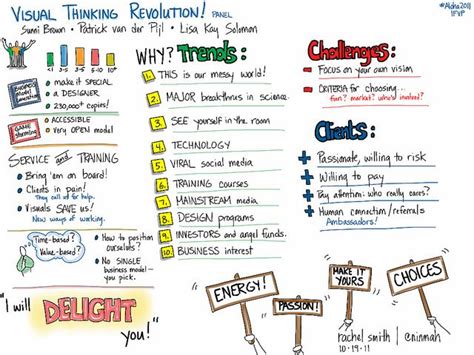 VISUAL THINKING REVOLUTION! PANEL
Sunni Brown • Patrick van der Pijl • Lisa Kay Solomon
#Aloha2011
IFVP
<1 1-3 3-5 5-10 10+
Business Model Generation
make it SPECIAL
a DESIGNER
230,000+ copies!
GAMEstorming
ACCESSIBLE
Very OPEN model
SERVICE and TRAINING
Bring 'em on board!
Clients in pain!
They call us for help.
Visuals SAVE us!
New ways of working.
Time-based?
Value-based?
How to position ourselves?
No SINGLE business model –
you pick.
"I will
DELIGHT
you!"
WHY? Trends:
1. THIS is our messy world!
2. MAJOR breakthrus in science.
3. SEE yourself in the room
4. TECHNOLOGY
5. VIRAL social media
6. TRAINING courses
7. MAINSTREAM media
8. DESIGN programs
9. INVESTORS and angel funds.
10. BUSINESS interest
Challenges:
FOCUS on your own vision
CRITERIA for choosing...
fun? market? who's involved?
Clients:
Passionate, willing to risk
Willing to pay
Pay attention: who really cares?
Human connection/referrals
Ambassadors!
ENERGY!
PASSION!
MAKE IT YOURS
CHOICES
rachel smith | @ninmah
10 • 19 • 11